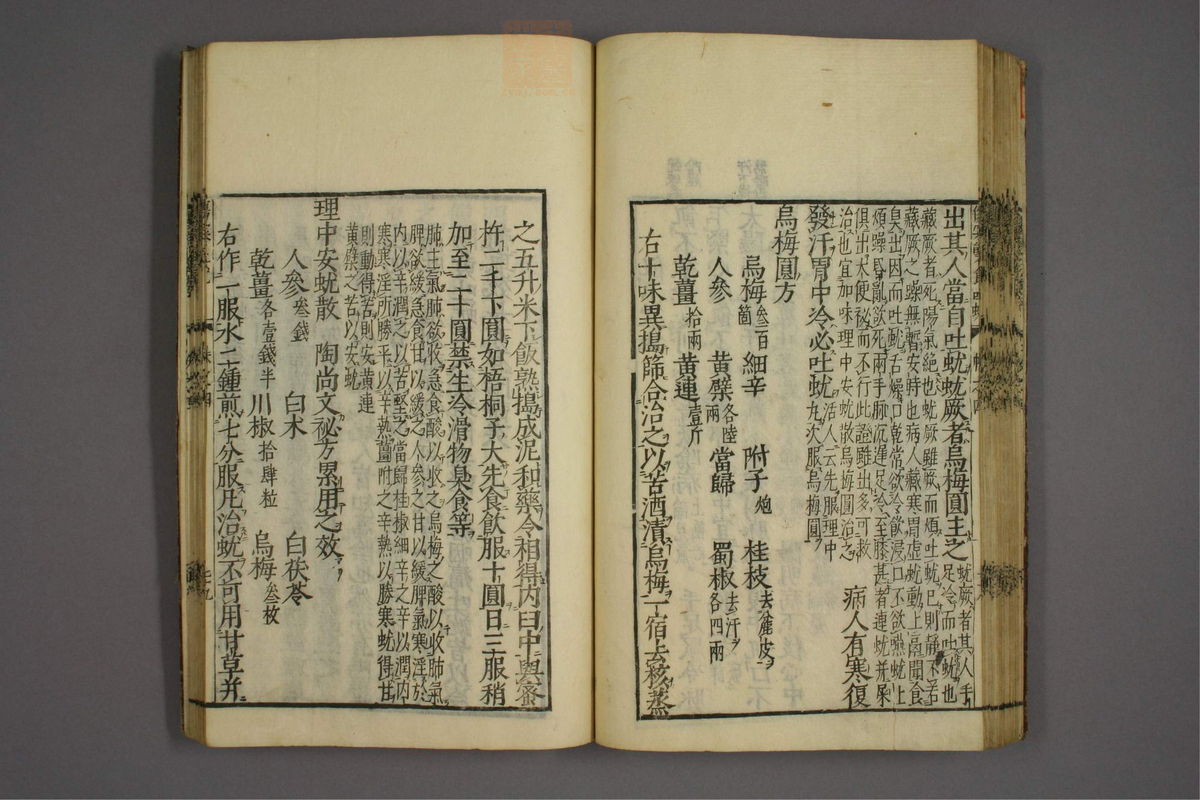 出其人當自吐蚘蚘厥者烏梅圓主之
蚘厥者其人手
足冷而吐蚘也
藏厥者死陽氣絕也蚘厥雖厥而煩吐蚘已則靜不若
藏厥之躁無暫安時也病人藏寒胃虛蚘動上膈聞食
臭出因而吐蚘舌燥口乾常欲冷飲浸口不欲嚥蚘上
煩躁昏亂欲死兩手脉沉遲足冷至膝甚者連蚘并屎
俱出大便秘而不行此證雖出多可救
治也宜加味理中安蚘散烏梅圓治之
病人有寒復
發汗胃中冷必吐蚘
活人云先服理中
九次服烏梅圓
烏梅圓方
烏梅叁百箇 細辛 附子炮 桂枝去麁皮
人參 黃檗各陸兩 當歸 蜀椒去汗各四兩
乾薑拾兩 黃連壹斤
右十味異搗篩合治之以苦酒漬烏梅一宿去核蒸
之五升米下飯熟搗成泥和藥令相得內臼中與蜜
杵二千下圓如梧桐子大先食飲服十圓日三服稍
加至二十圓禁生冷滑物臭食等
肺主氣肺欲收急食酸以收之烏梅之酸以收肺氣
脾欲緩急食甘以緩之人參之甘以緩脾氣寒淫於
內以辛潤之以苦堅之當歸桂椒細辛之辛以潤內
寒寒淫所勝平以辛熱薑附之辛熱以勝寒蚘得甘
則動得苦則安黃連
黃檗之苦以安蚘
理中安蚘散 陶尚文祕方累用之效
人參叁錢 白朮 白茯苓
乾薑各壹錢半 川椒拾肆粒 烏梅叁枚
右作一服水二鍾煎七分服凡治蚘不可用甘草并